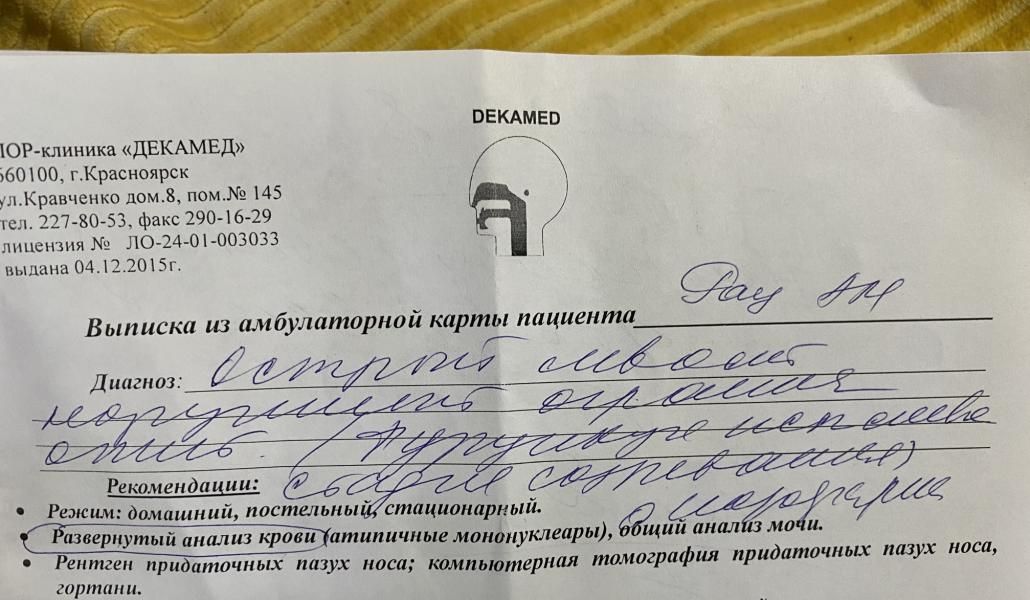 DEKAMED
ЛОР-клиника «ДЕКАМЕД»
660100, г.Красноярск
ул.Кравченко дом.8, пом.№ 145
тел. 227-80-53, факс 290-16-29
лицензия № ЛО-24-01-003033
выдана 04.12.2015г.
Выписка из амбулаторной карты пациента
Диагноз: Острый
наружный
отит.
Рекомендации: стадия созревания)
Режим: домашний, постельный, стационарный.
Развернутый анализ крови (атипичные мононуклеары), общий анализ мочи.
Рентген придаточных пазух носа; компьютерная томография придаточных пазух носа,
гортани.